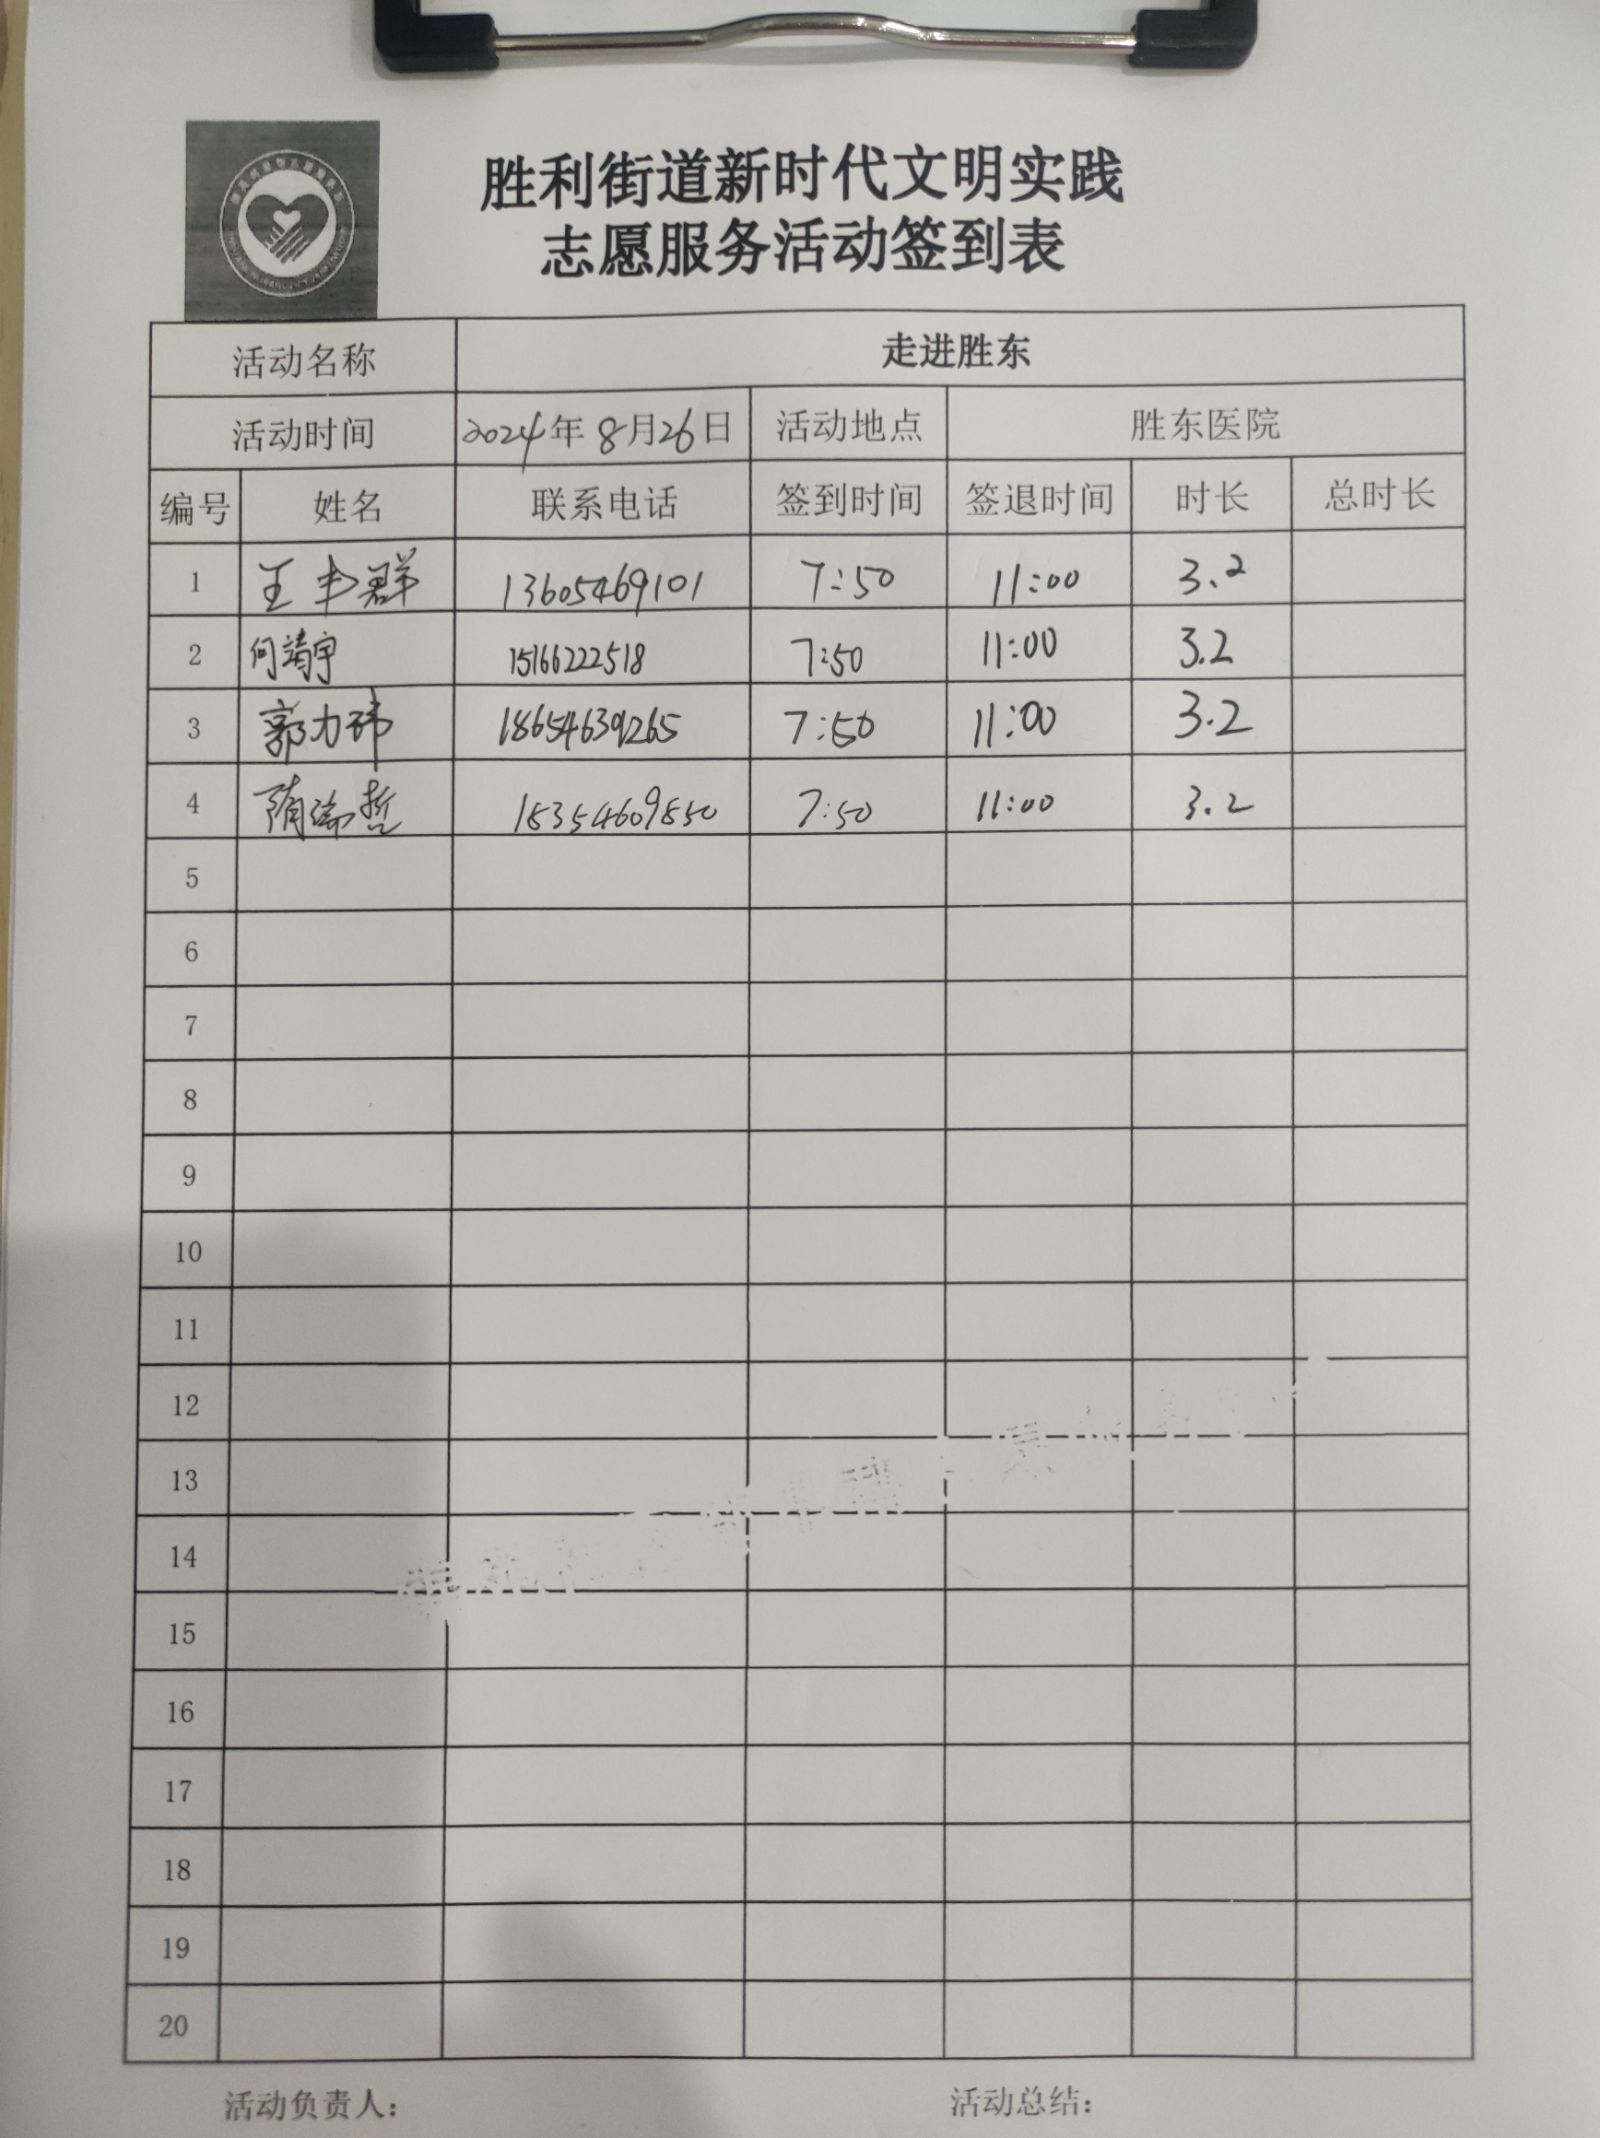 胜利街道新时代文明实践
志愿服务活动签到表
活动名称 走进胜东
活动时间 2024年8月26日 活动地点 胜东医院
编号 姓名 联系电话 签到时间 签退时间 时长 总时长
1 王丰群 13605469101 7:50 11:00 3.2
2 何靖宇 15166222518 7:50 11:00 3.2
3 郭力玮 18654639265 7:50 11:00 3.2
4 隋瑞哲 15354609850 7:50 11:00 3.2
5
6
7
8
9
10
11
12
13
14
15
16
17
18
19
20
活动负责人： 活动总结：